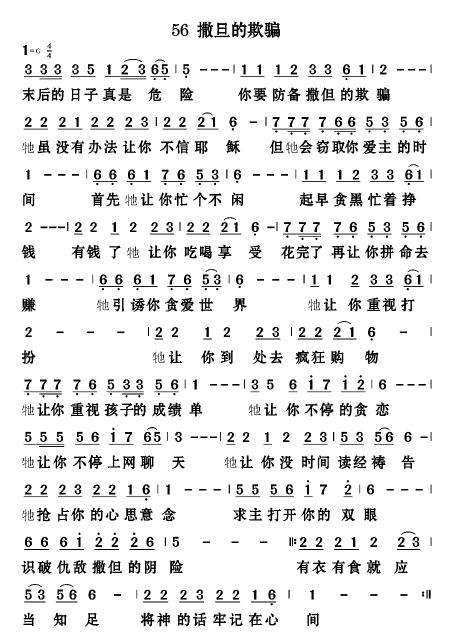 56 撒旦的欺骗
1=G 4/4
3 333 35 1 23 65 | 5 - - - | 1 1 12 33 61 | 2 - - - |
末后的日子真是 危 险 你要防备撒但的欺 骗
22 21 22 23 | 22 21 6 - | 777 766 53 56 |
牠虽没有办法让你 不信耶 稣 但牠会窃取你爱主的时
1 - - - | 66 61 76 53 | 6 - - - | 11 12 33 61 |
间 首先牠让你忙个不闲 起早贪黑忙着挣
2 - - - | 22 12 23 | 22 21 6 - | 777 76 53 56 |
钱 有钱了牠 让你吃喝享 受 花完了再让你拼命去
1 - - - | 66 61 76 53 | 6 - - - | 11 23 33 61 |
赚 牠引诱你贪爱世 界 牠让 你重视打
2 - - - | 22 12 23 | 22 21 6 - |
扮 牠让 你到 处去 疯狂购 物
777 76 533 56 | 1 - - - | 35 6 17 12 | 6 - - - |
牠让你 重视 孩子的成绩 单 牠让 你不停的贪 恋
555 56 17 65 | 3 - - - | 22 12 23 | 53 56 6 - |
牠让你 不停上网聊 天 牠让 你没 时间 读经祷 告
22 23 22 16 | 1 - - - | 55 56 17 2 | 6 - - - |
牠抢占你的心思意 念 求主打开你的 双眼
66 61 22 26 | 5 - - - ‖: 22 21 2 23 |
识破仇敌撒但的阴 险 有衣有食就 应
53 56 - - | 22 23 22 16 | 1 - - - :‖
当 知 足 将神的话牢记在心 间